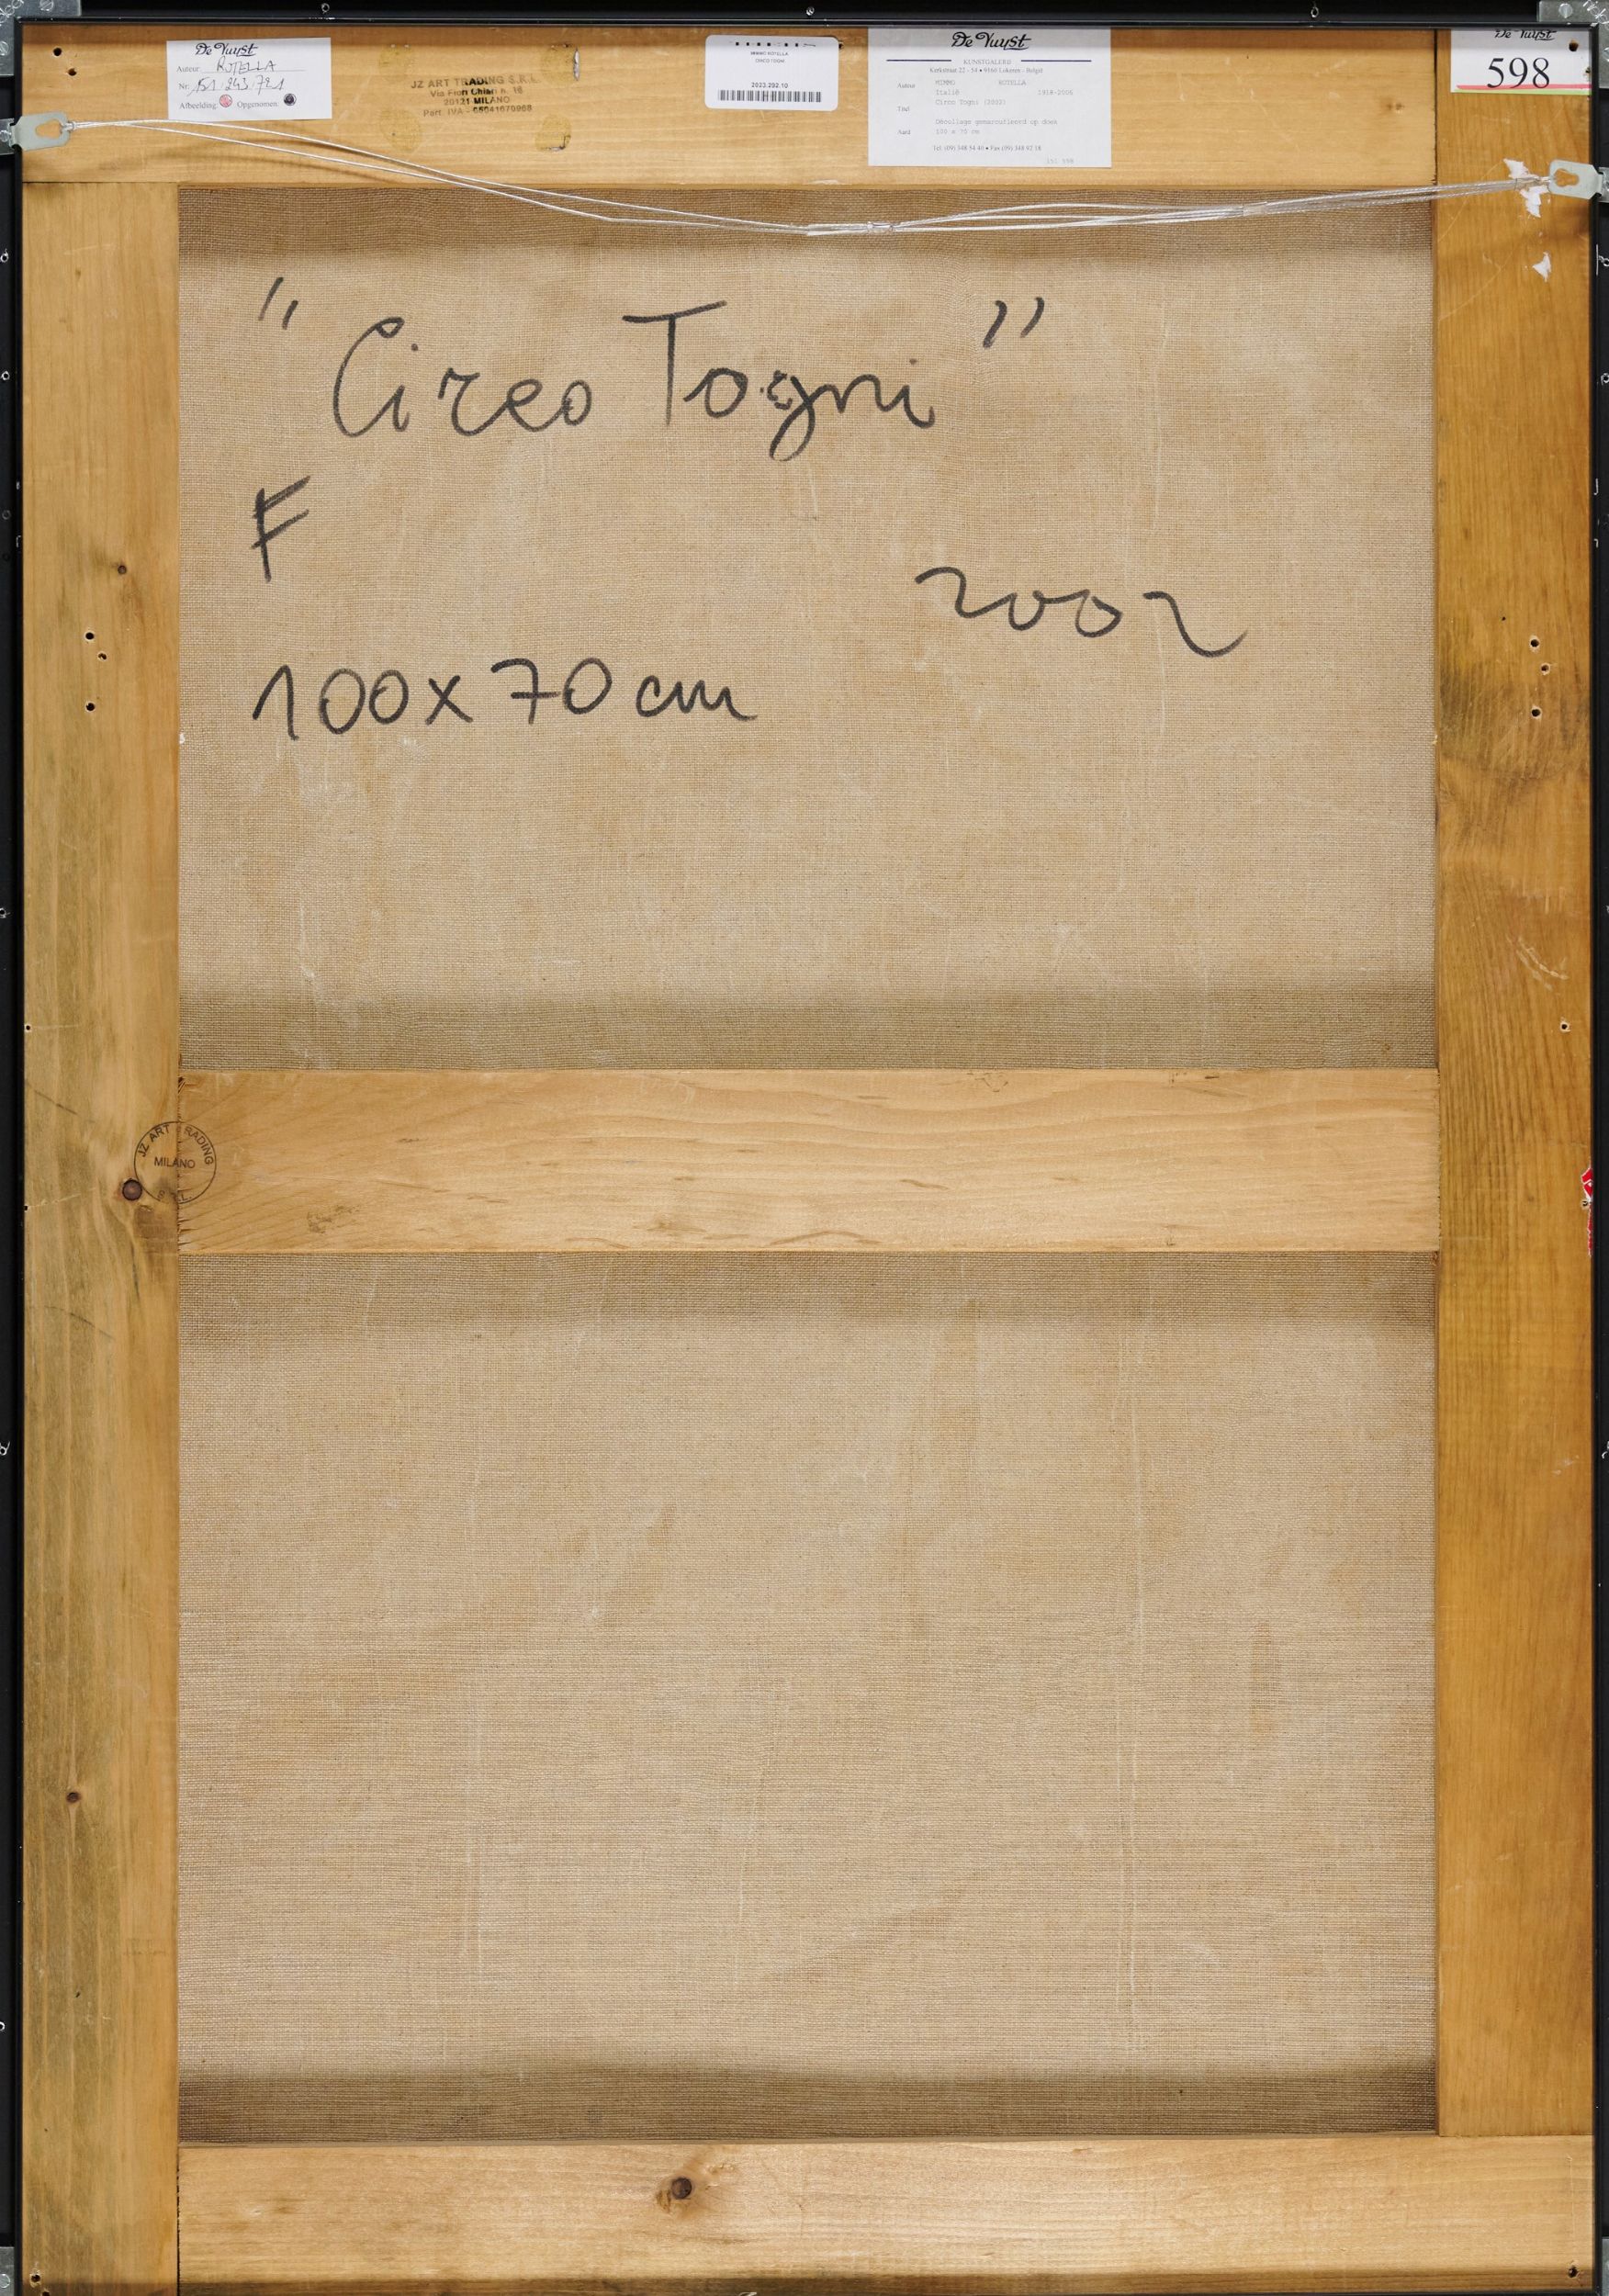 De Vuyst
Auteur: ROTELLA
Nr: 151/243/721
Afbeelding Opgenomen
JZ ART TRADING S.R.L.
Via Fiori Chiari n. 16
20121 MILANO
Part. IVA - 05041670968
MIMMO ROTELLA
CIRCO TOGNI
2023.292.10
De Vuyst
KUNSTGALERIJ
Kerkstraat 22 - 54 • 9160 Lokeren - België
Auteur MIMMO ROTELLA
Italië 1918-2006
Circo Togni (2002)
Titel
Décollage gemaroufleerd op doek
Aard 100 x 70 cm
Tel. (09) 348 54 40 • Fax (09) 348 92 18
151 598
De Vuyst
598
"Circo Togni"
F
2002
100x70cm
JZ ART TRADING
MILANO
S.R.L.